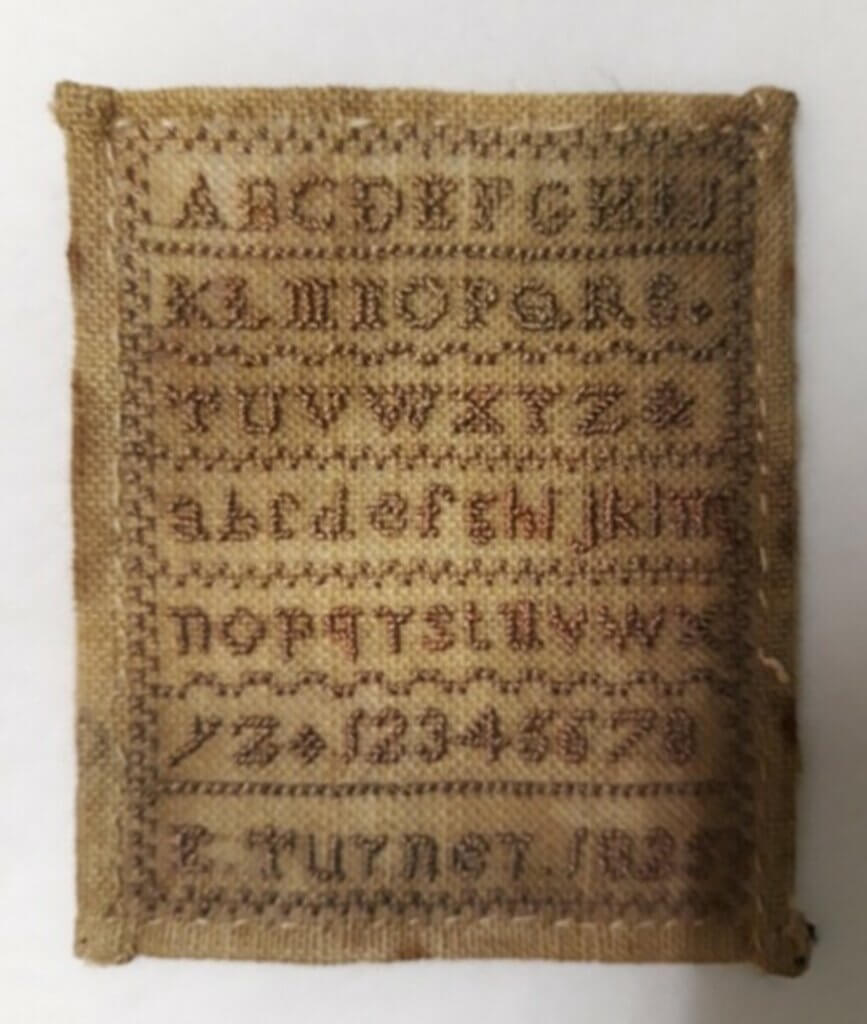 ABCDEFGHIJ
KLMNOPQRS
TUVWXYZ
abcdefghijklm
nopqrstuvwx
yz12345678
E Turner.